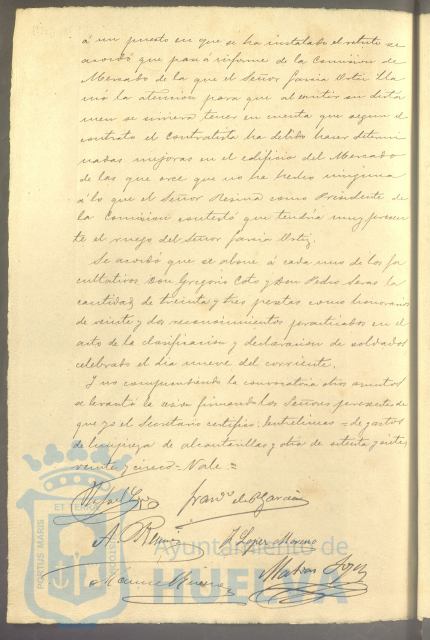 á un puesto en que se ha instalado el retrete se
acordó que pasá informe de la Comision de
Mercado de la que el Señor Garcia Ortiz lla
mó la atencion para que al emitir su dictá
men se sirviera tener en cuenta que segun el
contrato el Contratista ha debido hacer determi
nadas mejoras en el edificio del Mercado
de las que cree que no ha hecho ninguna
á lo que el Señor Resina como Presidente de
la Comision contestó que tendria muy presen
te el ruego del Señor Garcia Ortiz.
Se acordó que se abone á cada uno de los fa
cultativos Don Gregorio Coto y Don Pedro Seras la
cantidad de treinta y tres pesetas como honorarios
de veinte y dos reconocimientos practicados en el
acto de la clasificacion y declaracion de soldados
celebrado el dia nueve del corriente.
Y no comprendiendo la convocatoria otros asuntos
se levantó la sesion firmando los Señores presentes de
que yo el Secretario certifico. Entrelineas = de gastos
de limpieza de alcantarillas y otra de setenta y siete
veinte y cinco = Vale =
J. Lopez Moreno
Ayuntamiento de
HUELVA
PORTUS MARIS
ET TERRAE
CUSTODIA